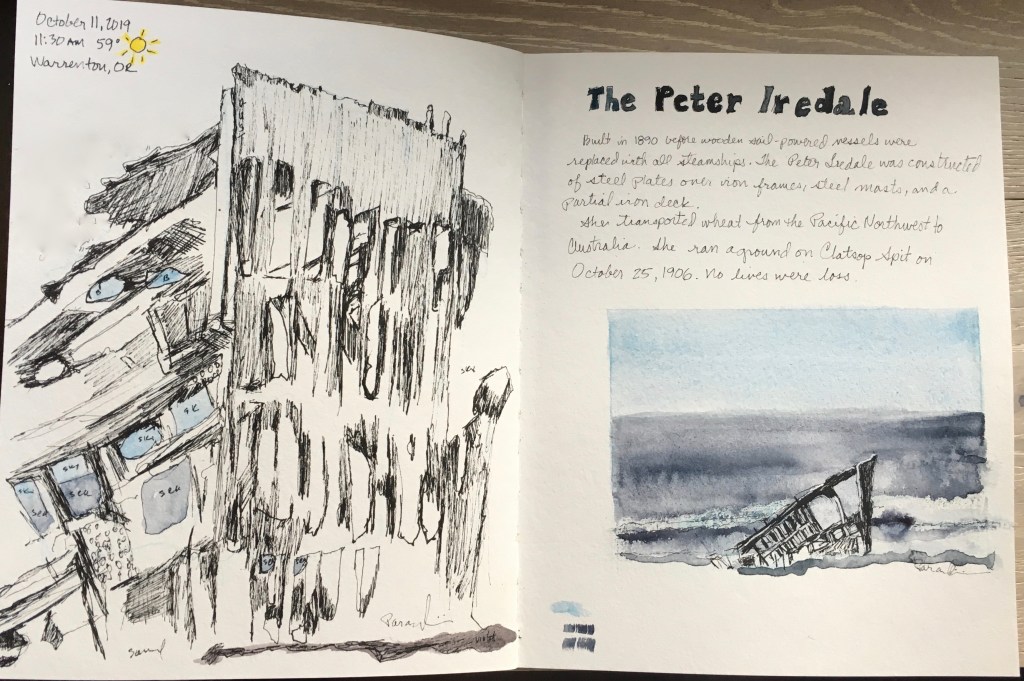 October 11, 2019
11:30 AM 59°
Warrenton, OR
B
B
SKY
SK
SKY
SKY
SKY
SEA
SEA
SEA
sand
violet
The Peter Iredale
Built in 1890 before wooden sail-powered vessels were
replaced with all steamships. The Peter Iredale was constructed
of steel plates over iron frames, steel masts, and a
partial iron deck.
She transported wheat from the Pacific Northwest to
Australia. She ran aground on Clatsop Spit on
October 25, 1906. No lives were loss.